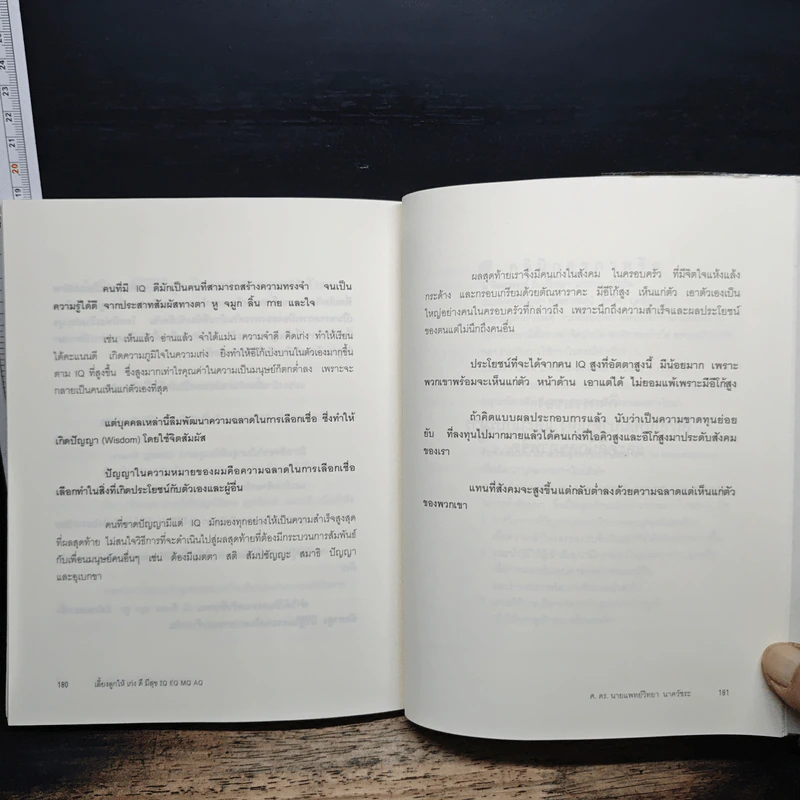 คนที่มี IQ ดีมักเป็นคนที่สามารถสร้างความทรงจำ จนเป็น
ความรู้ได้ดี จากประสาทสัมผัสทางตา หู จมูก ลิ้น กาย และใจ
เช่น เห็นแล้ว อ่านแล้ว จำได้แม่น ความจำดี คิดเก่ง ทำให้เรียน
ได้คะแนนดี เกิดความภูมิใจในความเก่ง ยิ่งทำให้อีโก้เบ่งบานในตัวเองมากขึ้น
ตาม IQ ที่สูงขึ้น ซึ่งสูงมากเท่าไรคุณค่าในความเป็นมนุษย์ก็ตกต่ำลง เพราะจะ
กลายเป็นคนเห็นแก่ตัวเองที่สุด
แต่บุคคลเหล่านี้ลืมพัฒนาความฉลาดในการเลือกเชื่อ ซึ่งทำให้
เกิดปัญญา (Wisdom) โดยใช้จิตสัมผัส
ปัญญาในความหมายของผมคือความฉลาดในการเลือกเชื่อ
เลือกทำในสิ่งที่เกิดประโยชน์กับตัวเองและผู้อื่น
คนที่ขาดปัญญามีแต่ IQ มักมองทุกอย่างให้เป็นความสำเร็จสูงสุด
ที่ผลสุดท้าย ไม่สนใจวิธีการที่จะดำเนินไปสู่ผลสุดท้ายที่ต้องมีกระบวนการสัมพันธ์
กับเพื่อนมนุษย์คนอื่นๆ เช่น ต้องมีเมตตา สติ สัมปชัญญะ สมาธิ ปัญญา
และอุเบกขา
180 เลี้ยงลูกให้ เก่ง ดี มีสุข IQ EQ MQ AQ
ผลสุดท้ายเราจึงมีคนเก่งในสังคม ในครอบครัว ที่มีจิตใจแห้งแล้ง
กระด้าง และกรอบเกรียมด้วยตัณหาราคะ มีอีโก้สูง เห็นแก่ตัว เอาตัวเองเป็น
ใหญ่อย่างคนในครอบครัวที่กล่าวถึง เพราะนึกถึงความสำเร็จและผลประโยชน์
ของตนแต่ไม่นึกถึงคนอื่น
ประโยชน์ที่จะได้จากคน IQ สูงที่อัตตาสูงนี้ มีน้อยมาก เพราะ
พวกเขาพร้อมจะเห็นแก่ตัว หน้าด้าน เอาแต่ได้ ไม่ยอมแพ้เพราะมีอีโก้สูง
ถ้าคิดแบบผลประกอบการแล้ว นับว่าเป็นความขาดทุนย่อย
ยับ ที่ลงทุนไปมากมายแล้วได้คนเก่งที่ไอคิวสูงและอีโก้สูงมาประดับสังคม
ของเรา
แทนที่สังคมจะสูงขึ้นแต่กลับต่ำลงด้วยความฉลาดแต่เห็นแก่ตัว
ของพวกเขา
ศ. ดร. นายแพทย์วิทยา นาควัชระ 181